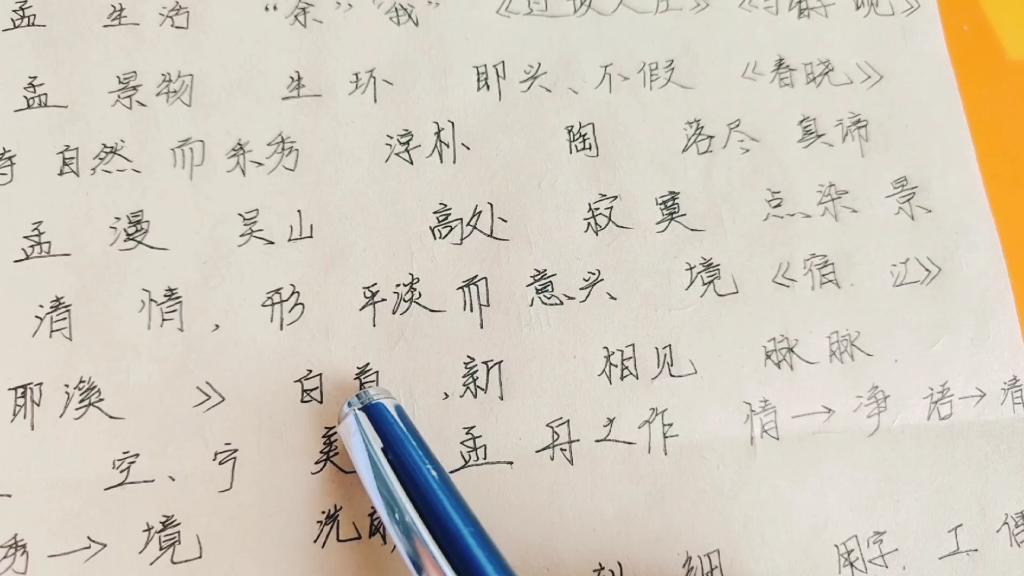 孟 生活 "余" "我" 《过故人庄》
孟 景物 生 环 即兴、不假 《春晓》
诗 自然 而 余秀 淳朴 陶 落尽 真谛
孟 漫 吴山 高处 寂寞 点染 景
清 情, 形 平淡 而 意兴 境 《宿. 江》
耶溪 》 白首, 新 相见 脉脉.
空、宁 美 孟 舟之作 情→净 语→清
秀→境 洗 细 用字. 工